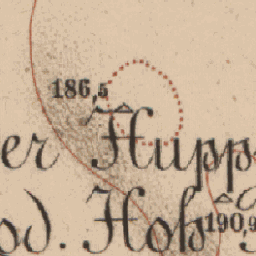 186,5
er Hupp
od. Hoh
190,9